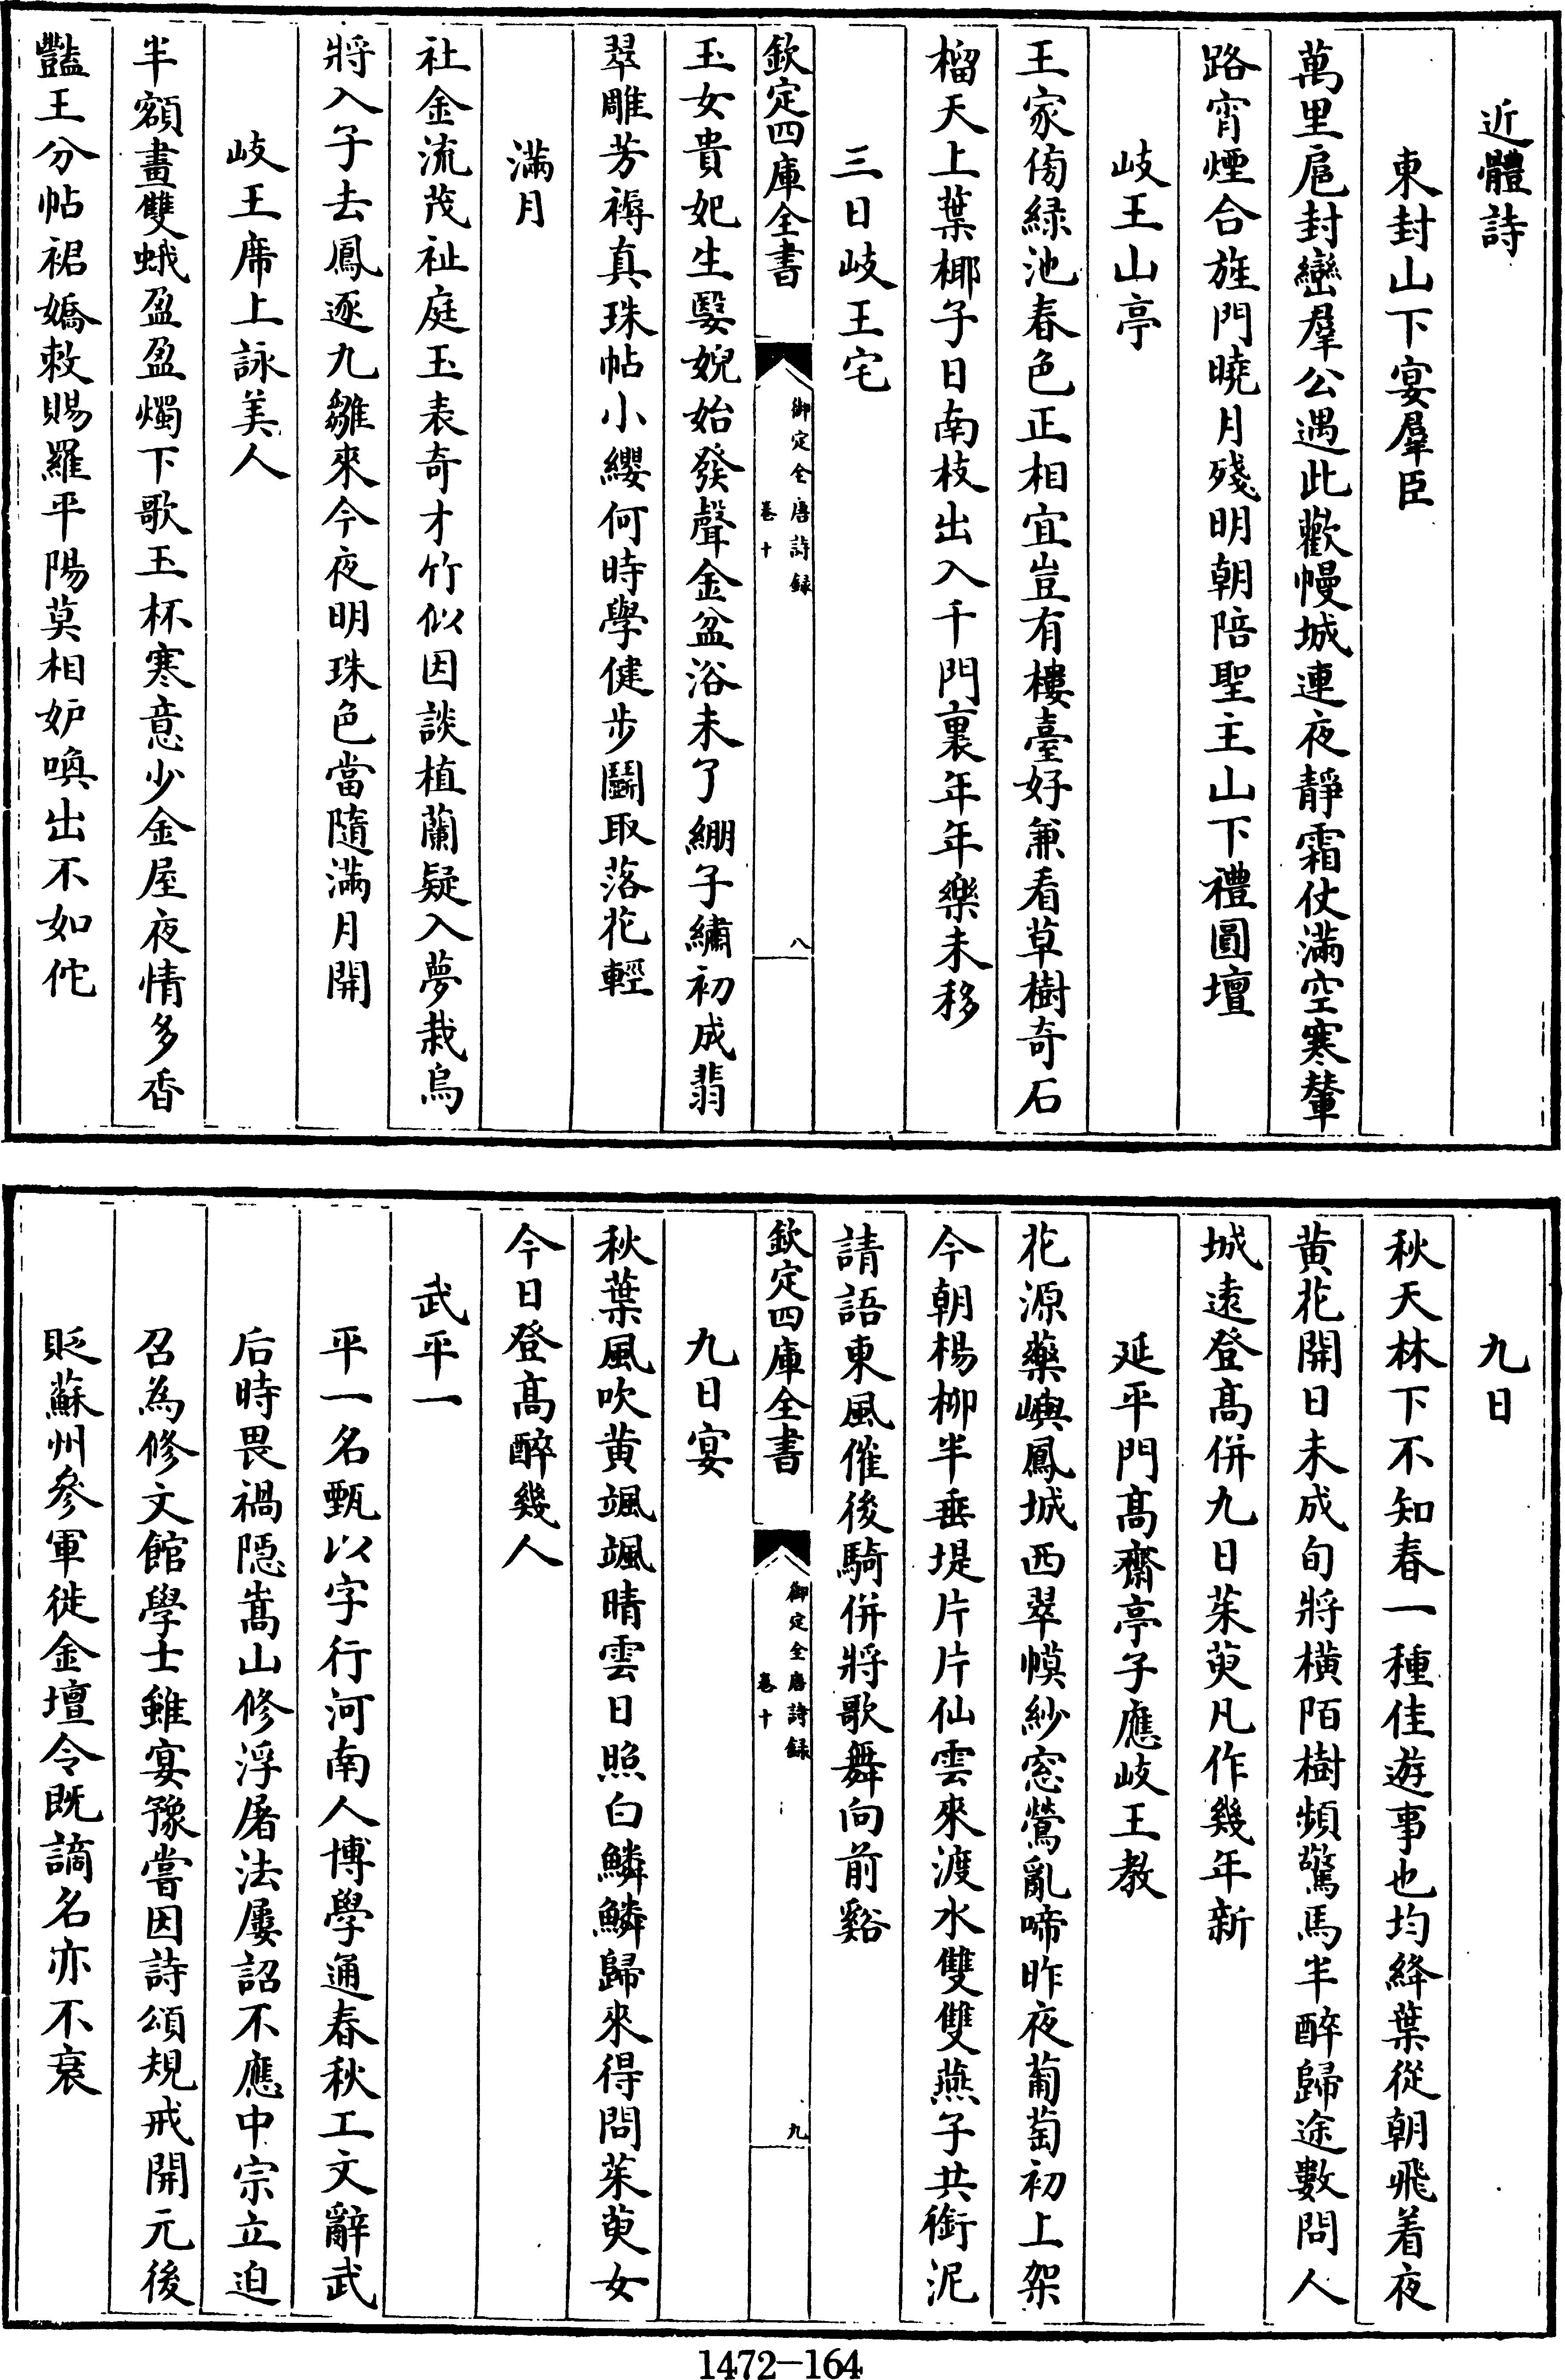 近體詩
東封山下宴羣臣
萬里扈封巒羣公遇此歡幔城連夜靜霜仗滿空寒輦
路宵煙合旌門曉月殘明朝陪聖主山下禮圓壇
岐王山亭
王家傍緑池春色正相宜豈有樓臺好兼看草樹奇石
榴天上葉椰子日南枝出入千門裏年年樂未移
三日岐王宅
欽定四庫全書
御定全唐詩録
卷十
八
玉女貴妃生嫛婗始發聲金盆浴未了綳子繡初成翡
翠雕芳褥真珠帖小纓何時學健步鬬取落花輕
滿月
社金流茂祉庭玉表奇才竹似因談植蘭疑入夢栽烏
將入子去鳳逐九雛來今夜明珠色當隨滿月開
岐王席上詠美人
半額畫雙蛾盈盈燭下歌玉杯寒意少金屋夜情多香
豔王分帖裙嬌敕賜羅平陽莫相妒喚出不如佗
九日
秋天林下不知春一種佳遊事也均絳葉從朝飛着夜
黄花開日未成旬將横陌樹頻驚馬半醉歸途數問人
城遠登髙併九日茱萸凡作幾年新
延平門髙齋亭子應岐王教
花源藥嶼鳳城西翠幙紗窓鶯亂啼昨夜葡萄初上架
今朝楊柳半垂堤片片仙雲來渡水雙雙燕子共銜泥
請語東風催後騎併將歌舞向前谿
欽定四庫全書
御定全唐詩録
卷十
九
九日宴
秋葉風吹黄颯颯晴雲日照白鱗鱗歸來得問茱萸女
今日登髙醉幾人
武平一
平一名甄以字行河南人博學通春秋工文辭武
后時畏禍隠嵩山修浮屠法屢詔不應中宗立迫
召為修文館學士雖宴豫嘗因詩頌規戒開元後
貶蘇州參軍徙金壇令既謫名亦不衰
1472-164